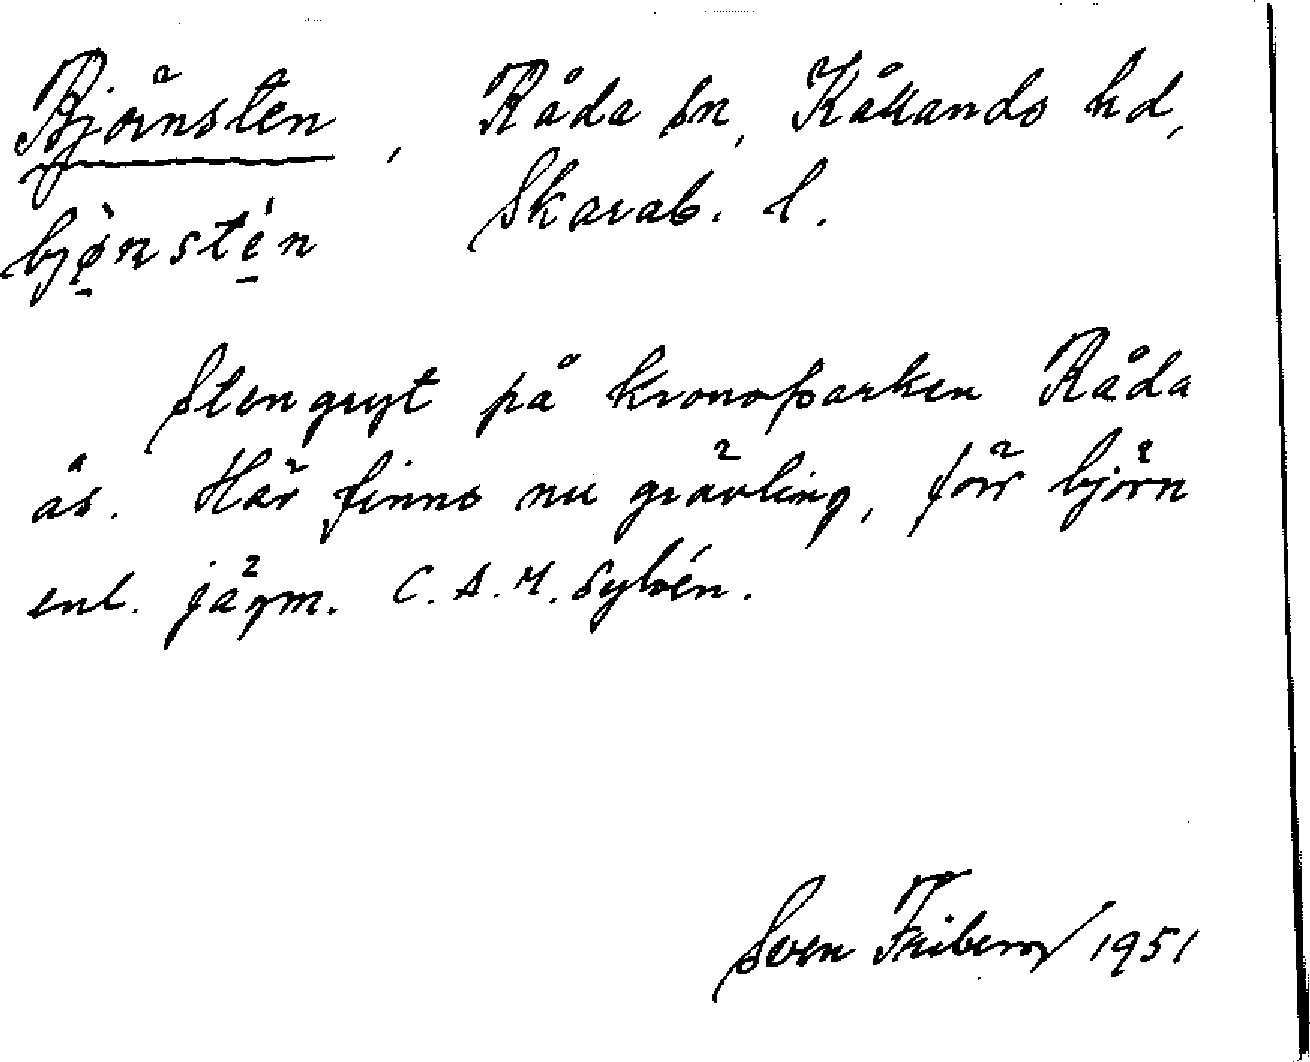 Björnsten, Råda sn, Kållands hd,
bjø̀nstén Skarab. l.
Stengryt på kronoparken Råda
ås. Här finns nu grävling, förr björn
enl. jägm. C. A. M. Sylvén.
Sven Friberg 1951